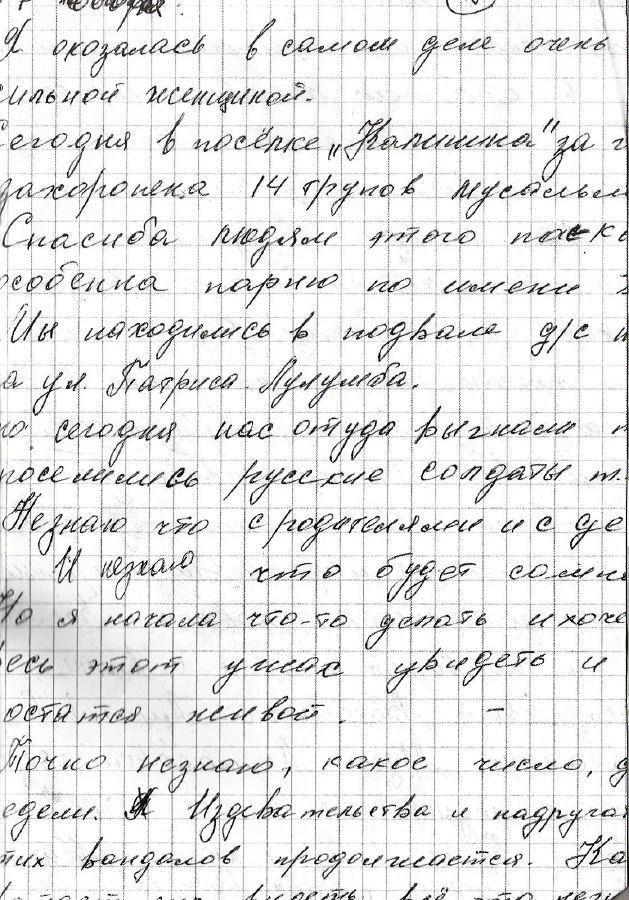 Я окозалась в самом деле очень
сильной женщиной.
Сегодня в посёлке „Калинина" за
захоронена 14 трупов мусальм
Спасиба людям этого посёлк
особенна парню по имени
Мы находились в подвале д/с
а ул. Патриса Лулумба.
но сегодня нас отуда выгнали
поселились русские солдаты
Незнаю что с родителями и с де
И незнаю что будет самн
Но я начала что-то делать и хоче
весь этот ужас увидеть и
остатся живой. –
Точно незнаю, какое число, д
едели. Издевательства и надругат
тих вандалов продолжается. Ка